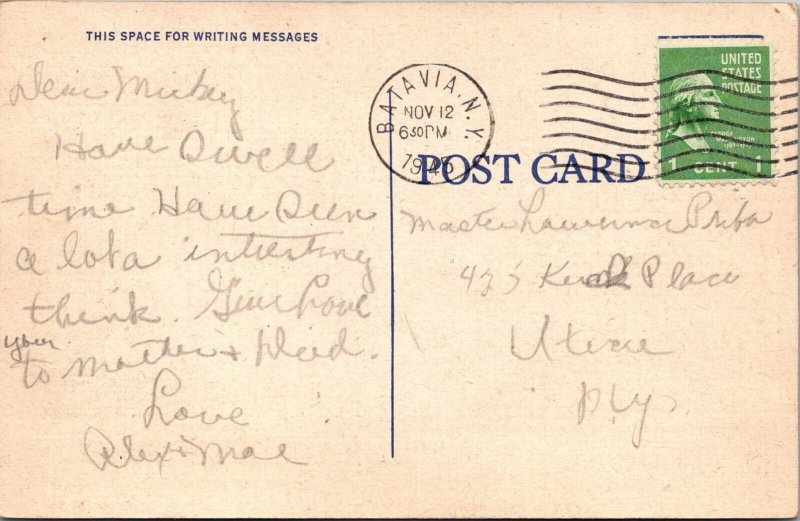 THIS SPACE FOR WRITING MESSAGES
Dear Mickey
Have Swell
time Have Seen
a lota intresting
think. Give Love
your
to Mother + Dad.
Love
Alex + Mae
BATAVIA, N.Y.
NOV 12
630PM
1945
UNITED
STATES
POSTAGE
GEORGE
WASHINGTON
1 CENT 1
POST CARD
Master Lawrence Priba
Place
Utica
N.Y.